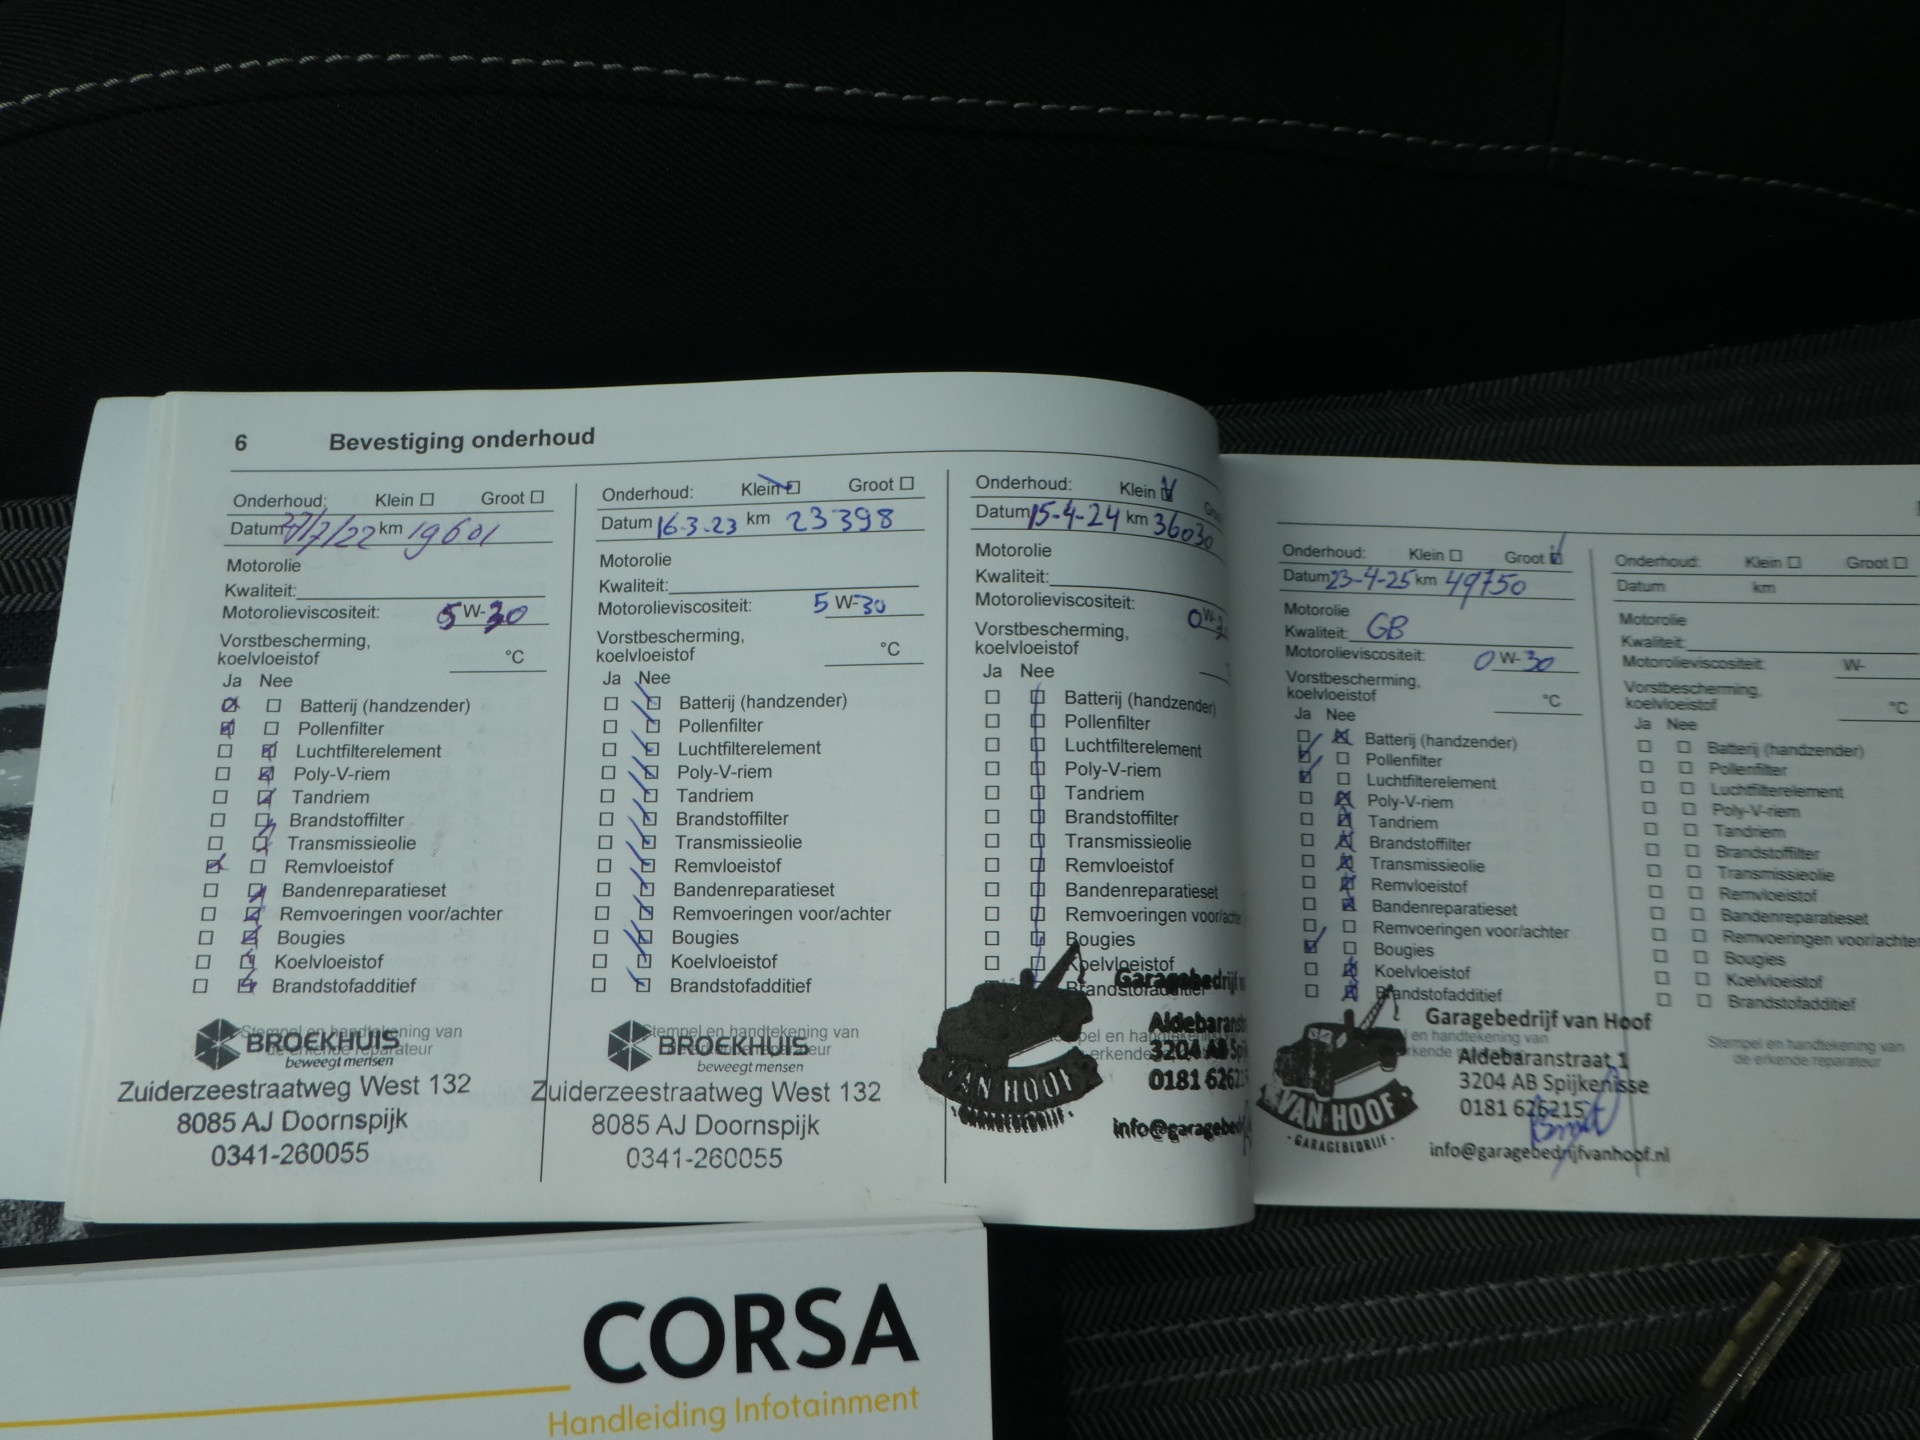 6 Bevestiging onderhoud
Onderhoud: Klein Groot
Datum 27/7/22 km 19601
Motorolie
Kwaliteit:
Motorolieviscositeit: 5 W-30
Vorstbescherming,
koelvloeistof °C
Ja Nee
Batterij (handzender)
Pollenfilter
Luchtfilterelement
Poly-V-riem
Tandriem
Brandstoffilter
Transmissieolie
Remvloeistof
Bandenreparatieset
Remvoeringen voor/achter
Bougies
Koelvloeistof
Brandstofadditief
Stempel en handtekening van
de erkende reparateur
BROEKHUIS
beweegt mensen
Zuiderzeestraatweg West 132
8085 AJ Doornspijk
0341-260055
Onderhoud: Klein Groot
Datum 16-3-23 km 23398
Motorolie
Kwaliteit:
Motorolieviscositeit: 5 W-30
Vorstbescherming,
koelvloeistof °C
Ja Nee
Batterij (handzender)
Pollenfilter
Luchtfilterelement
Poly-V-riem
Tandriem
Brandstoffilter
Transmissieolie
Remvloeistof
Bandenreparatieset
Remvoeringen voor/achter
Bougies
Koelvloeistof
Brandstofadditief
Stempel en handtekening van
de erkende reparateur
BROEKHUIS
beweegt mensen
Zuiderzeestraatweg West 132
8085 AJ Doornspijk
0341-260055
Onderhoud: Klein
Datum 15-4-24 km 36030
Motorolie
Kwaliteit:
Motorolieviscositeit: 0 W-
Vorstbescherming,
koelvloeistof
Ja Nee
Batterij (handzender)
Pollenfilter
Luchtfilterelement
Poly-V-riem
Tandriem
Brandstoffilter
Transmissieolie
Remvloeistof
Bandenreparatieset
Remvoeringen voor/achte
Bougies
Koelvloeistof
Brandstofadditief
Garagebedrijf
Aldebaranst
3204 AB Spij
0181 6262
info@garagebed
VAN HOOF
GARAGEBEDRIJF
Onderhoud: Klein Groot
Datum 23-4-25 km 49750
Motorolie
Kwaliteit: GB
Motorolieviscositeit: 0 W-30
Vorstbescherming,
koelvloeistof °C
Ja Nee
Batterij (handzender)
Pollenfilter
Luchtfilterelement
Poly-V-riem
Tandriem
Brandstoffilter
Transmissieolie
Remvloeistof
Bandenreparatieset
Remvoeringen voor/achter
Bougies
Koelvloeistof
Brandstofadditief
Garagebedrijf van Hoof
Aldebaranstraat 1
3204 AB Spijkenisse
0181 626215
info@garagebedrijfvanhoof.nl
VAN HOOF
GARAGEBEDRIJF
Onderhoud: Klein Groot
Datum km
Motorolie
Kwaliteit:
Motorolieviscositeit: W-
Vorstbescherming,
koelvloeistof °C
Ja Nee
Batterij (handzender)
Pollenfilter
Luchtfilterelement
Poly-V-riem
Tandriem
Brandstoffilter
Transmissieolie
Remvloeistof
Bandenreparatieset
Remvoeringen voor/achter
Bougies
Koelvloeistof
Brandstofadditief
Stempel en handtekening van
de erkende reparateur
CORSA
Handleiding Infotainment